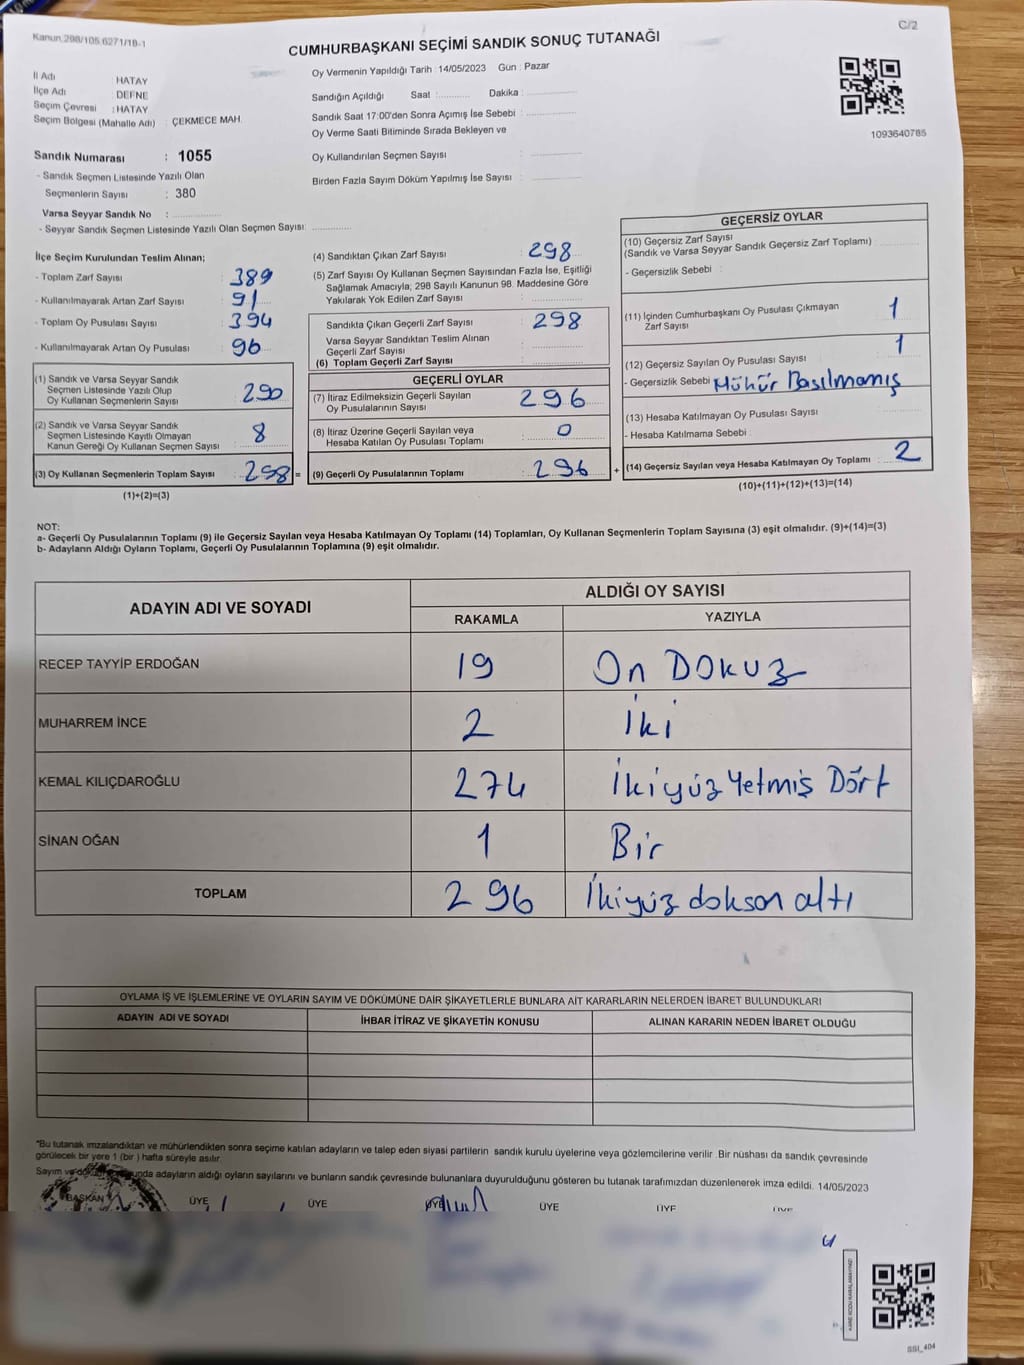 Kanun.298/105.6271/18-1
C/2
CUMHURBAŞKANI SEÇİMİ SANDIK SONUÇ TUTANAĞI
İl Adı : HATAY
İlçe Adı : DEFNE
Seçim Çevresi : HATAY
Seçim Bölgesi (Mahalle Adı) : ÇEKMECE MAH.
Oy Vermenin Yapıldığı Tarih : 14/05/2023 Gün : Pazar
Sandığın Açıldığı Saat : Dakika :
Sandık Saat 17:00'den Sonra Açımış İse Sebebi :
Oy Verme Saati Bitiminde Sırada Bekleyen ve
Oy Kullandırılan Seçmen Sayısı :
Birden Fazla Sayım Döküm Yapılmış İse Sayısı :
1093640785
Sandık Numarası : 1055
- Sandık Seçmen Listesinde Yazılı Olan
Seçmenlerin Sayısı : 380
Varsa Seyyar Sandık No :
- Seyyar Sandık Seçmen Listesinde Yazılı Olan Seçmen Sayısı:
İlçe Seçim Kurulundan Teslim Alınan;
- Toplam Zarf Sayısı : 389
- Kullanılmayarak Artan Zarf Sayısı : 91
- Toplam Oy Pusulası Sayısı : 394
- Kullanılmayarak Artan Oy Pusulası : 96
(1) Sandık ve Varsa Seyyar Sandık
Seçmen Listesinde Yazılı Olup
Oy Kullanan Seçmenlerin Sayısı : 290
(2) Sandık ve Varsa Seyyar Sandık
Seçmen Listesinde Kayıtlı Olmayan
Kanun Gereği Oy Kullanan Seçmen Sayısı : 8
(3) Oy Kullanan Seçmenlerin Toplam Sayısı : 298 =
(1)+(2)=(3)
(4) Sandıktan Çıkan Zarf Sayısı : 298
(5) Zarf Sayısı Oy Kullanan Seçmen Sayısından Fazla İse, Eşitliği
Sağlamak Amacıyla; 298 Sayılı Kanunun 98. Maddesine Göre
Yakılarak Yok Edilen Zarf Sayısı :
Sandıkta Çıkan Geçerli Zarf Sayısı : 298
Varsa Seyyar Sandıktan Teslim Alınan
Geçerli Zarf Sayısı :
(6) Toplam Geçerli Zarf Sayısı :
GEÇERLİ OYLAR
(7) İtiraz Edilmeksizin Geçerli Sayılan
Oy Pusulalarının Sayısı : 296
(8) İtiraz Üzerine Geçerli Sayılan veya
Hesaba Katılan Oy Pusulası Toplamı : 0
(9) Geçerli Oy Pusulalarının Toplamı : 296 +
GEÇERSİZ OYLAR
(10) Geçersiz Zarf Sayısı
(Sandık ve Varsa Seyyar Sandık Geçersiz Zarf Toplamı) :
- Geçersizlik Sebebi :
(11) İçinden Cumhurbaşkanı Oy Pusulası Çıkmayan
Zarf Sayısı : 1
(12) Geçersiz Sayılan Oy Pusulası Sayısı : 1
- Geçersizlik Sebebi : Mühür Basılmamış
(13) Hesaba Katılmayan Oy Pusulası Sayısı :
- Hesaba Katılmama Sebebi :
(14) Geçersiz Sayılan veya Hesaba Katılmayan Oy Toplamı : 2
(10)+(11)+(12)+(13)=(14)
NOT:
a- Geçerli Oy Pusulalarının Toplamı (9) ile Geçersiz Sayılan veya Hesaba Katılmayan Oy Toplamı (14) Toplamları, Oy Kullanan Seçmenlerin Toplam Sayısına (3) eşit olmalıdır. (9)+(14)=(3)
b- Adayların Aldığı Oyların Toplamı, Geçerli Oy Pusulalarının Toplamına (9) eşit olmalıdır.
ADAYIN ADI VE SOYADI
ALDIĞI OY SAYISI
RAKAMLA YAZIYLA
RECEP TAYYİP ERDOĞAN 19 On DOKUZ
MUHARREM İNCE 2 İki
KEMAL KILIÇDAROĞLU 274 İkiyüz Yetmiş Dört
SİNAN OĞAN 1 Bir
TOPLAM 296 İkiyüz doksan altı
OYLAMA İŞ VE İŞLEMLERİNE VE OYLARIN SAYIM VE DÖKÜMÜNE DAİR ŞİKAYETLERLE BUNLARA AİT KARARLARIN NELERDEN İBARET BULUNDUKLARI
ADAYIN ADI VE SOYADI İHBAR İTİRAZ VE ŞİKAYETİN KONUSU ALINAN KARARIN NEDEN İBARET OLDUĞU
"Bu tutanak imzalandıktan ve mühürlendikten sonra seçime katılan adayların ve talep eden siyasi partilerin sandık kurulu üyelerine veya gözlemcilerine verilir. Bir nüshası da sandık çevresinde
görülecek bir yere 1 (bir ) hafta süreyle asılır.
Sayım ve adayların aldığı oyların sayılarını ve bunların sandık çevresinde bulunanlara duyurulduğunu gösteren bu tutanak tarafımızdan düzenlenerek imza edildi. 14/05/2023
BAŞKAN ÜYE ÜYE ÜYE ÜYE ÜYE ÜYE
SSI_404